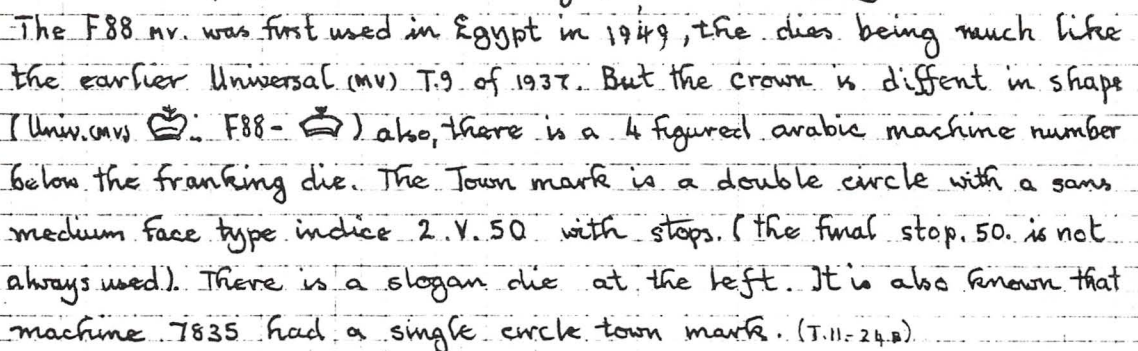 The F88 mv. was first used in Egypt in 1949, the dies being much like
the earlier Universal (MV) T.9 of 1937. But the crown is diffent in shape
(Univ. (MV) : F88 - ) also, there is a 4 figured arabic machine number
below the franking die. The Town mark is a double circle with a sans
medium face type indice 2.V.50 with stops. (the final stop. 50. is not
always used). There is a slogan die at the left. It is also known that
machine 7835 had a single circle town mark. (T.11-24.B)